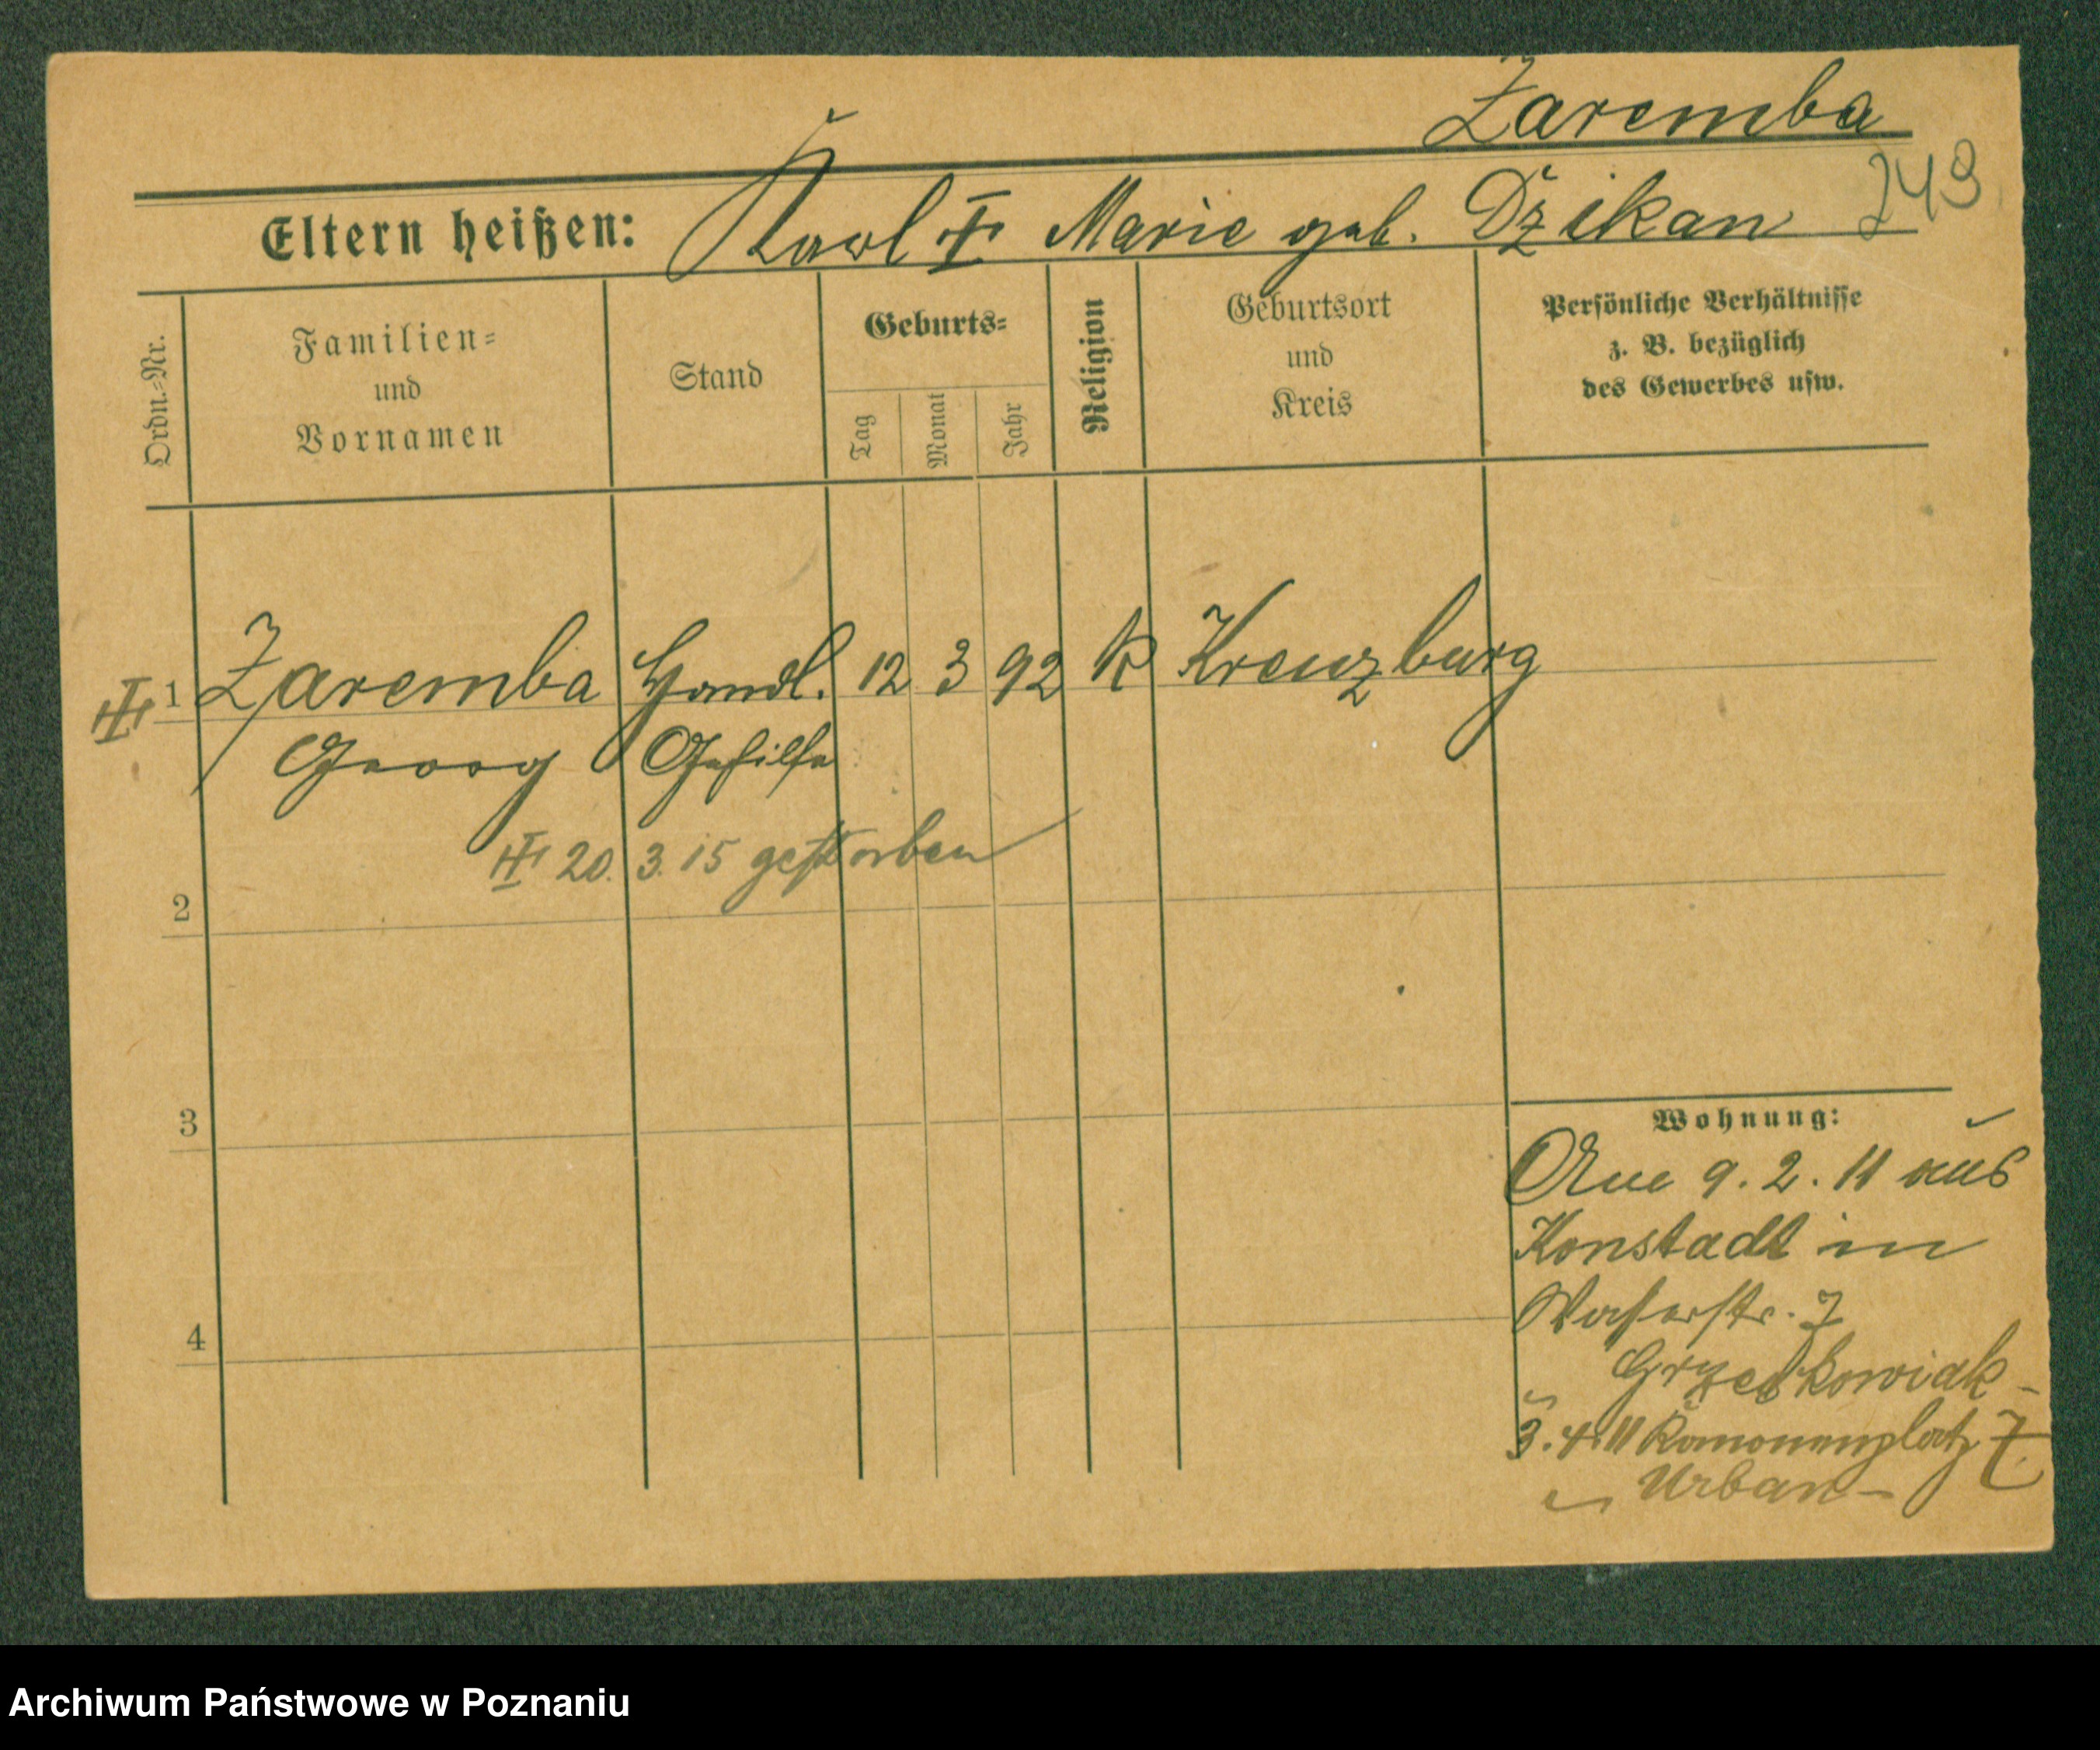 Zaremba
243
Eltern heißen: Karl † Marie geb. Dzikan
Ordn.=Nr.
Familien=
und
Vornamen
Stand
Geburts=
Tag
Monat
Jahr
Religion
Geburtsort
und
Kreis
Persönliche Verhältnisse
z. B. bezüglich
des Gewerbes usw.
1 Zaremba Handl. 12 3 92 K Kreuzburg
Georg Gehilfe
20. 3. 15 gestorben
2
3
4
Wohnung:
9. 2. 11 aus
Konstadt in
Wasserstr. 7
Grzeskowiak -
3. 4. 11 Kanonenplatz 7.
Urban -
Archiwum Państwowe w Poznaniu